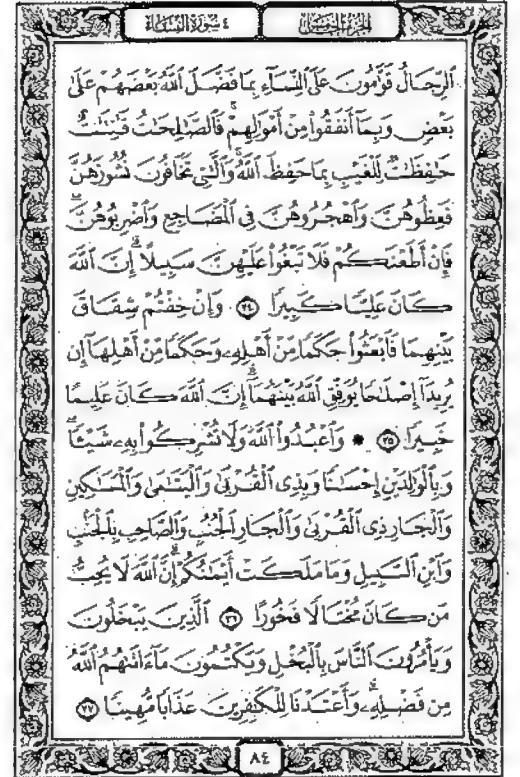 ٤ سُورَةُ النِّسَاءِ
الجُزْءُ الخَامِسُ
ٱلرِّجَالُ قَوَّٰمُونَ عَلَى ٱلنِّسَآءِ بِمَا فَضَّلَ ٱللَّهُ بَعْضَهُمْ عَلَىٰ
بَعْضٍ وَبِمَآ أَنفَقُوا۟ مِنْ أَمْوَٰلِهِمْ ۚ فَٱلصَّٰلِحَٰتُ قَٰنِتَٰتٌ
حَٰفِظَٰتٌ لِّلْغَيْبِ بِمَا حَفِظَ ٱللَّهُ ۚ وَٱلَّٰتِى تَخَافُونَ نُشُوزَهُنَّ
فَعِظُوهُنَّ وَٱهْجُرُوهُنَّ فِى ٱلْمَضَاجِعِ وَٱضْرِبُوهُنَّ ۖ
فَإِنْ أَطَعْنَكُمْ فَلَا تَبْغُوا۟ عَلَيْهِنَّ سَبِيلًا ۗ إِنَّ ٱللَّهَ
كَانَ عَلِيًّا كَبِيرًا ٣٤ وَإِنْ خِفْتُمْ شِقَاقَ
بَيْنِهِمَا فَٱبْعَثُوا۟ حَكَمًا مِّنْ أَهْلِهِۦ وَحَكَمًا مِّنْ أَهْلِهَآ إِن
يُرِيدَآ إِصْلَٰحًا يُوَفِّقِ ٱللَّهُ بَيْنَهُمَآ ۗ إِنَّ ٱللَّهَ كَانَ عَلِيمًا
خَبِيرًا ٣٥ ۞ وَٱعْبُدُوا۟ ٱللَّهَ وَلَا تُشْرِكُوا۟ بِهِۦ شَيْـًٔا ۖ
وَبِٱلْوَٰلِدَيْنِ إِحْسَٰنًا وَبِذِى ٱلْقُرْبَىٰ وَٱلْيَتَٰمَىٰ وَٱلْمَسَٰكِينِ
وَٱلْجَارِ ذِى ٱلْقُرْبَىٰ وَٱلْجَارِ ٱلْجُنُبِ وَٱلصَّاحِبِ بِٱلْجَنۢبِ
وَٱبْنِ ٱلسَّبِيلِ وَمَا مَلَكَتْ أَيْمَٰنُكُمْ ۗ إِنَّ ٱللَّهَ لَا يُحِبُّ
مَن كَانَ مُخْتَالًا فَخُورًا ٣٦ ٱلَّذِينَ يَبْخَلُونَ
وَيَأْمُرُونَ ٱلنَّاسَ بِٱلْبُخْلِ وَيَكْتُمُونَ مَآ ءَاتَىٰهُمُ ٱللَّهُ
مِن فَضْلِهِۦ ۗ وَأَعْتَدْنَا لِلْكَٰفِرِينَ عَذَابًا مُّهِينًا ٣٧
٨٤